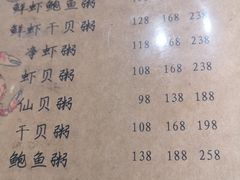 鲜虾鲍鱼粥 128 168 238
鲜虾干贝粥 118 168 238
膏虾粥 118 168 238
虾贝粥 108 168 238
仙贝粥 98 138 188
干贝粥 108 168 198
鲍鱼粥 138 188 258